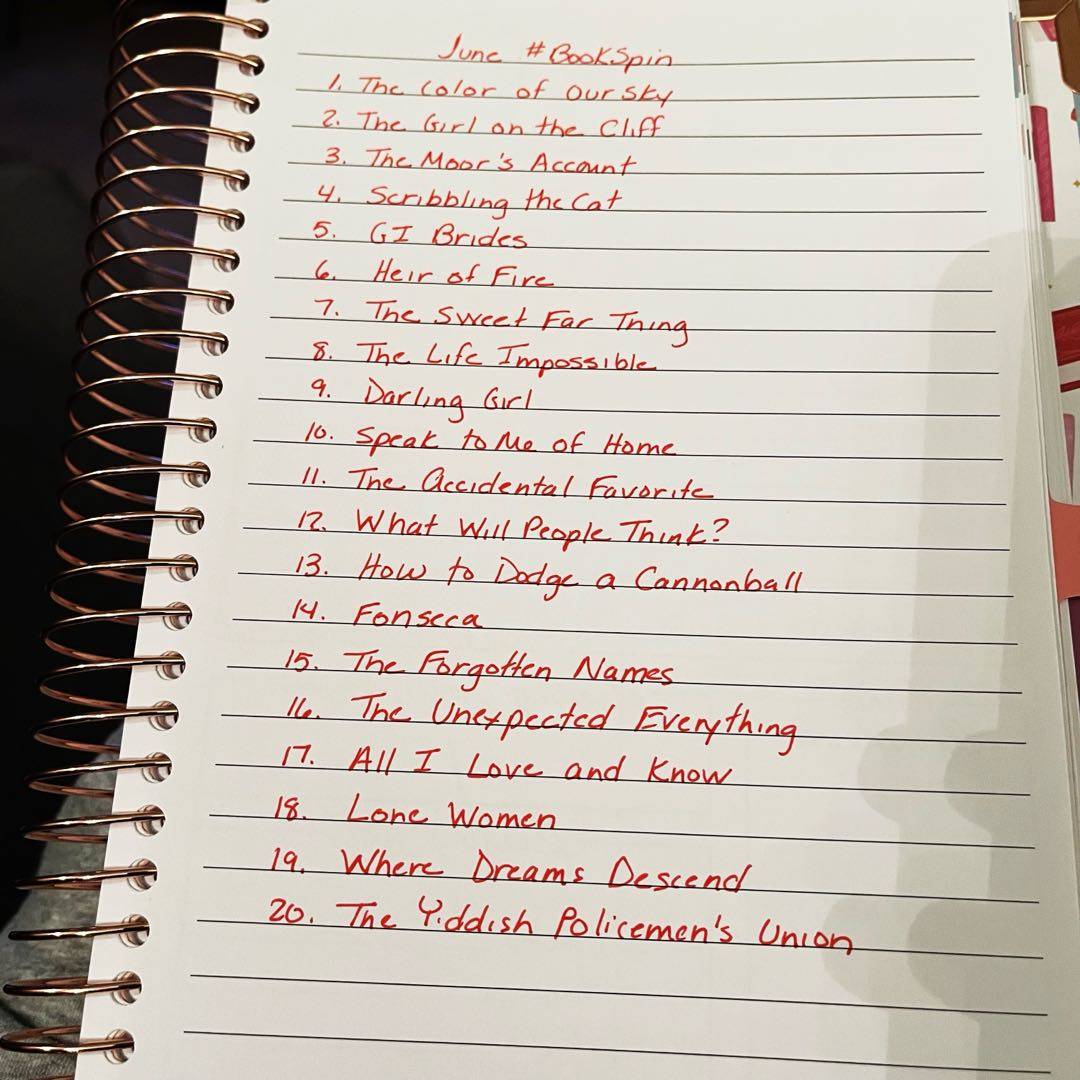 June #BookSpin
1. The Color of Our Sky
2. The Girl on the Cliff
3. The Moor's Account
4. Scribbling the Cat
5. GI Brides
6. Heir of Fire
7. The Sweet Far Thing
8. The Life Impossible
9. Darling Girl
10. Speak to Me of Home
11. The Accidental Favorite
12. What Will People Think?
13. How to Dodge a Cannonball
14. Fonseca
15. The Forgotten Names
16. The Unexpected Everything
17. All I Love and Know
18. Lone Women
19. Where Dreams Descend
20. The Yiddish Policemen's Union